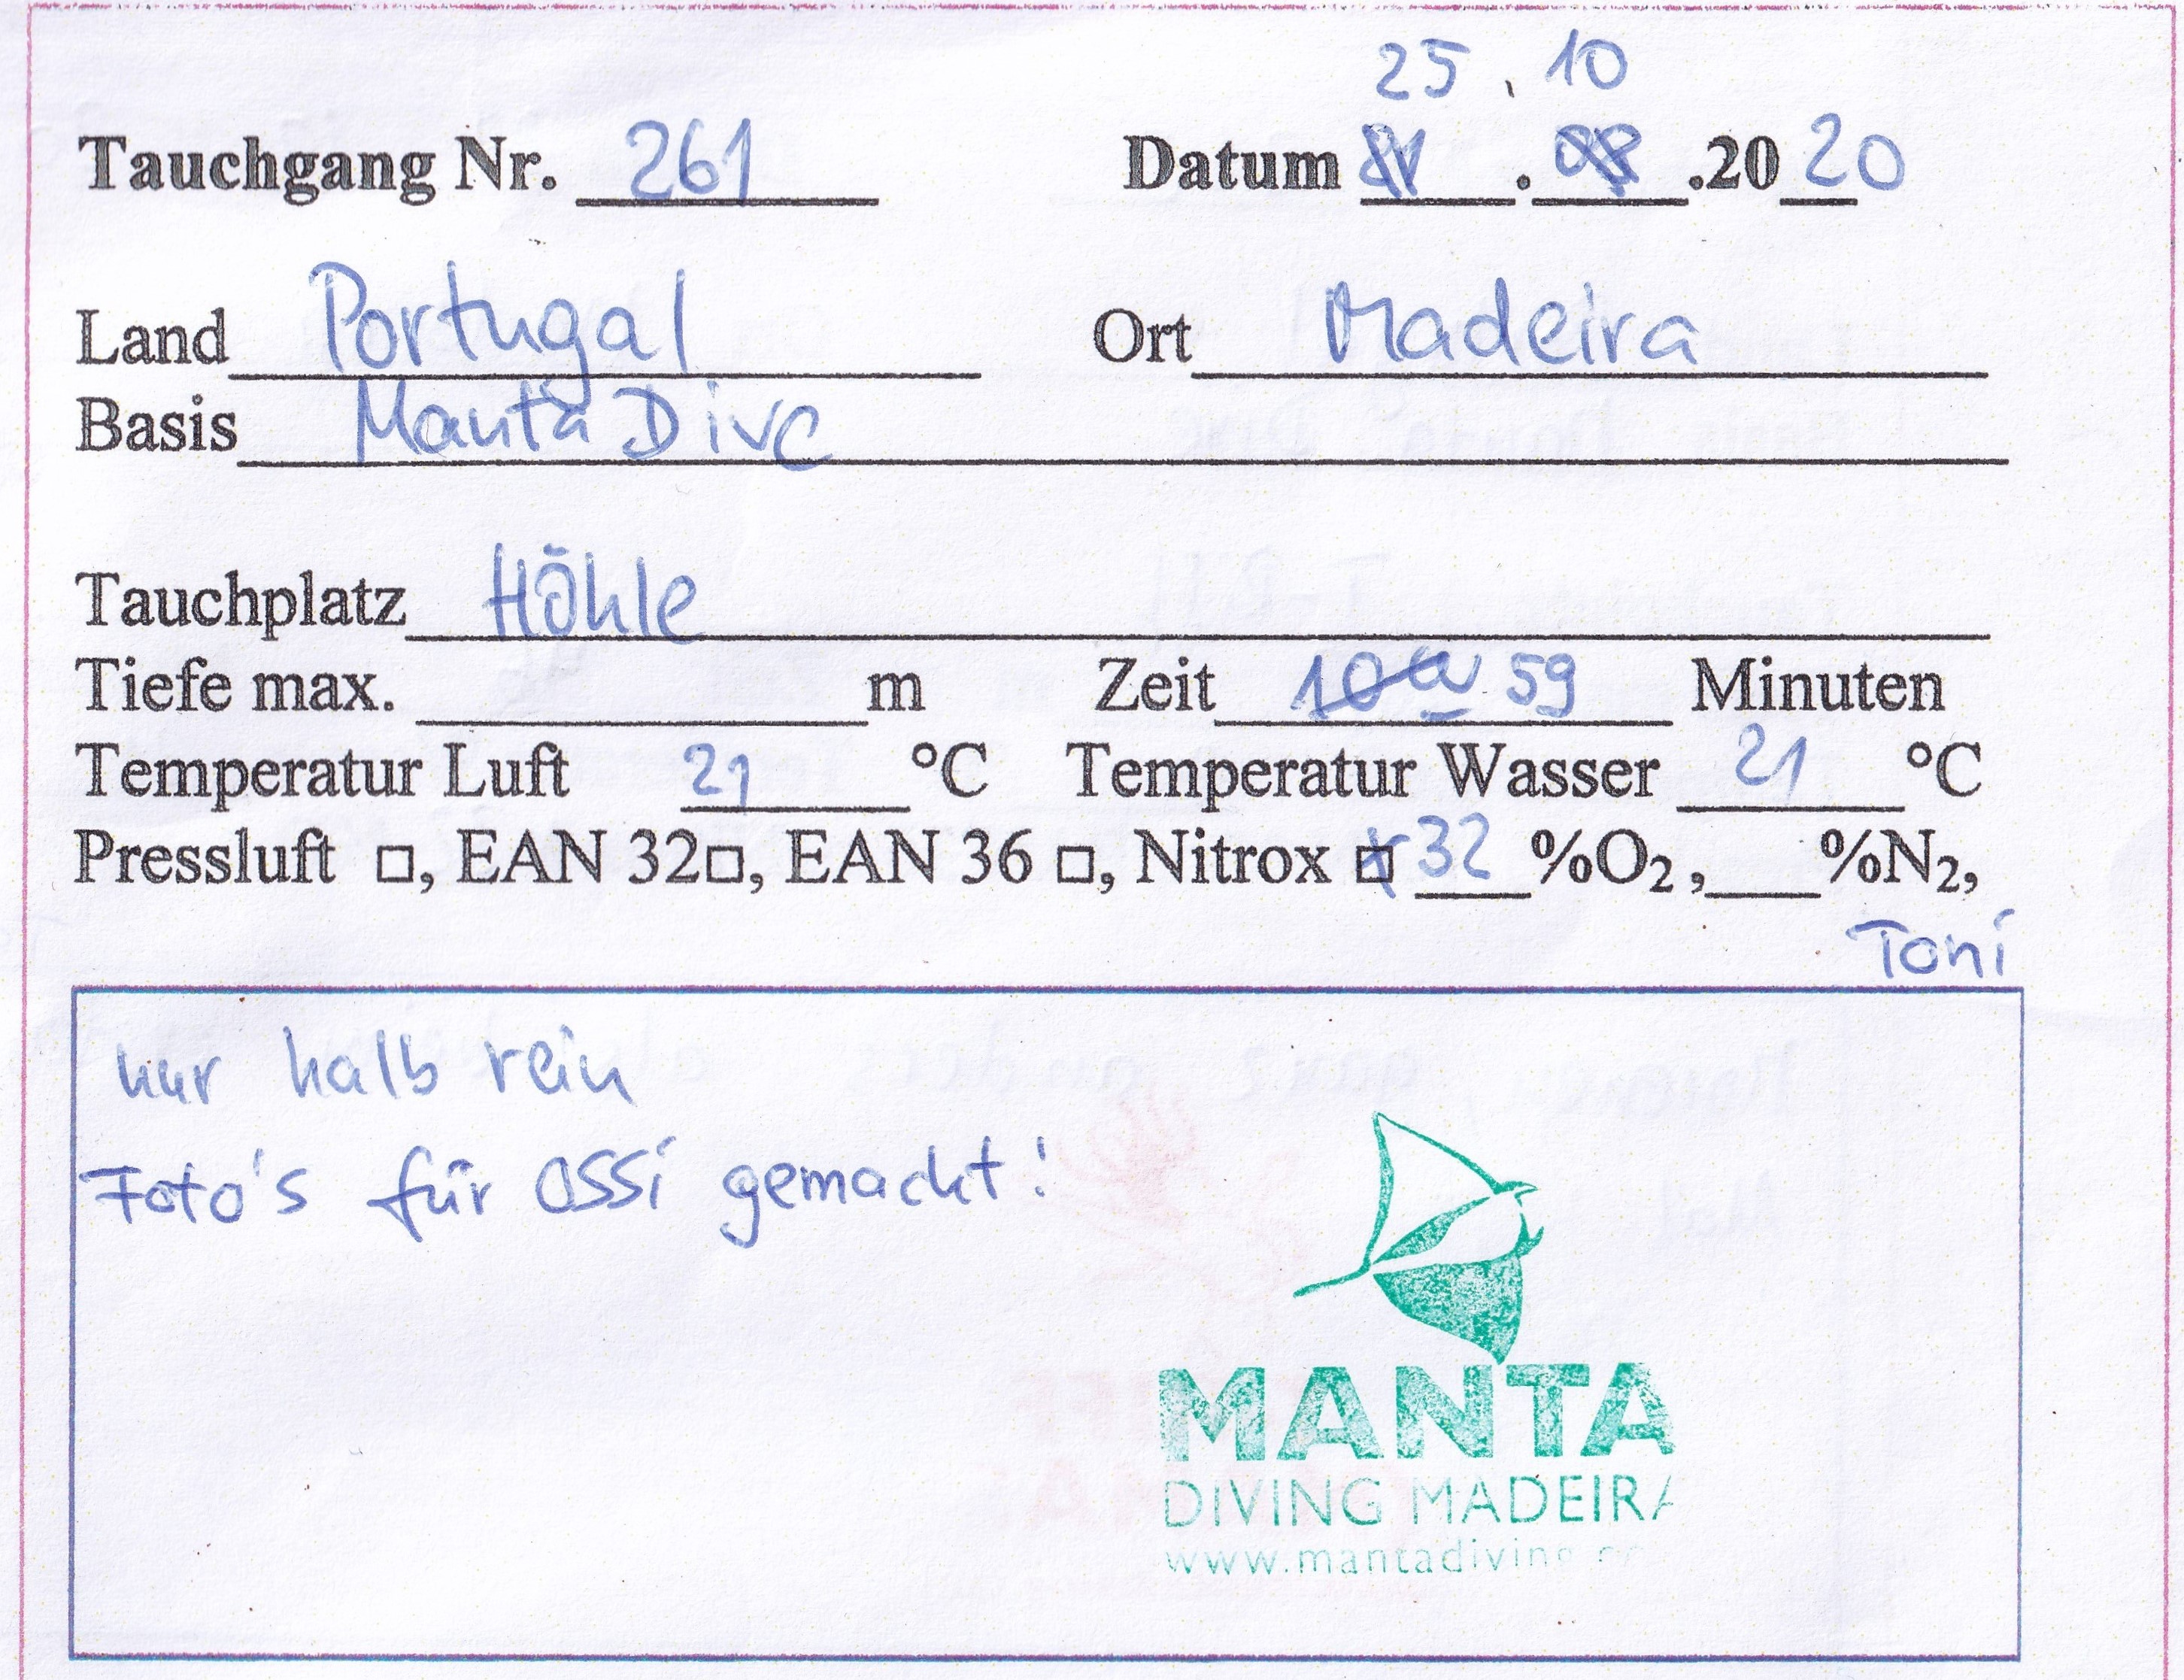 25.10
Tauchgang Nr. 261 Datum . .2020
Land Portugal Ort Madeira
Basis Manta Dive
Tauchplatz Höhle
Tiefe max. m Zeit 59 Minuten
Temperatur Luft 21 °C Temperatur Wasser 21 °C
Pressluft □, EAN 32□, EAN 36 □, Nitrox ☒ 32 %O₂, %N₂,
Toni
nur halb rein
Foto's für Ossi gemacht!
MANTA
DIVING MADEIRA
www.mantadiving